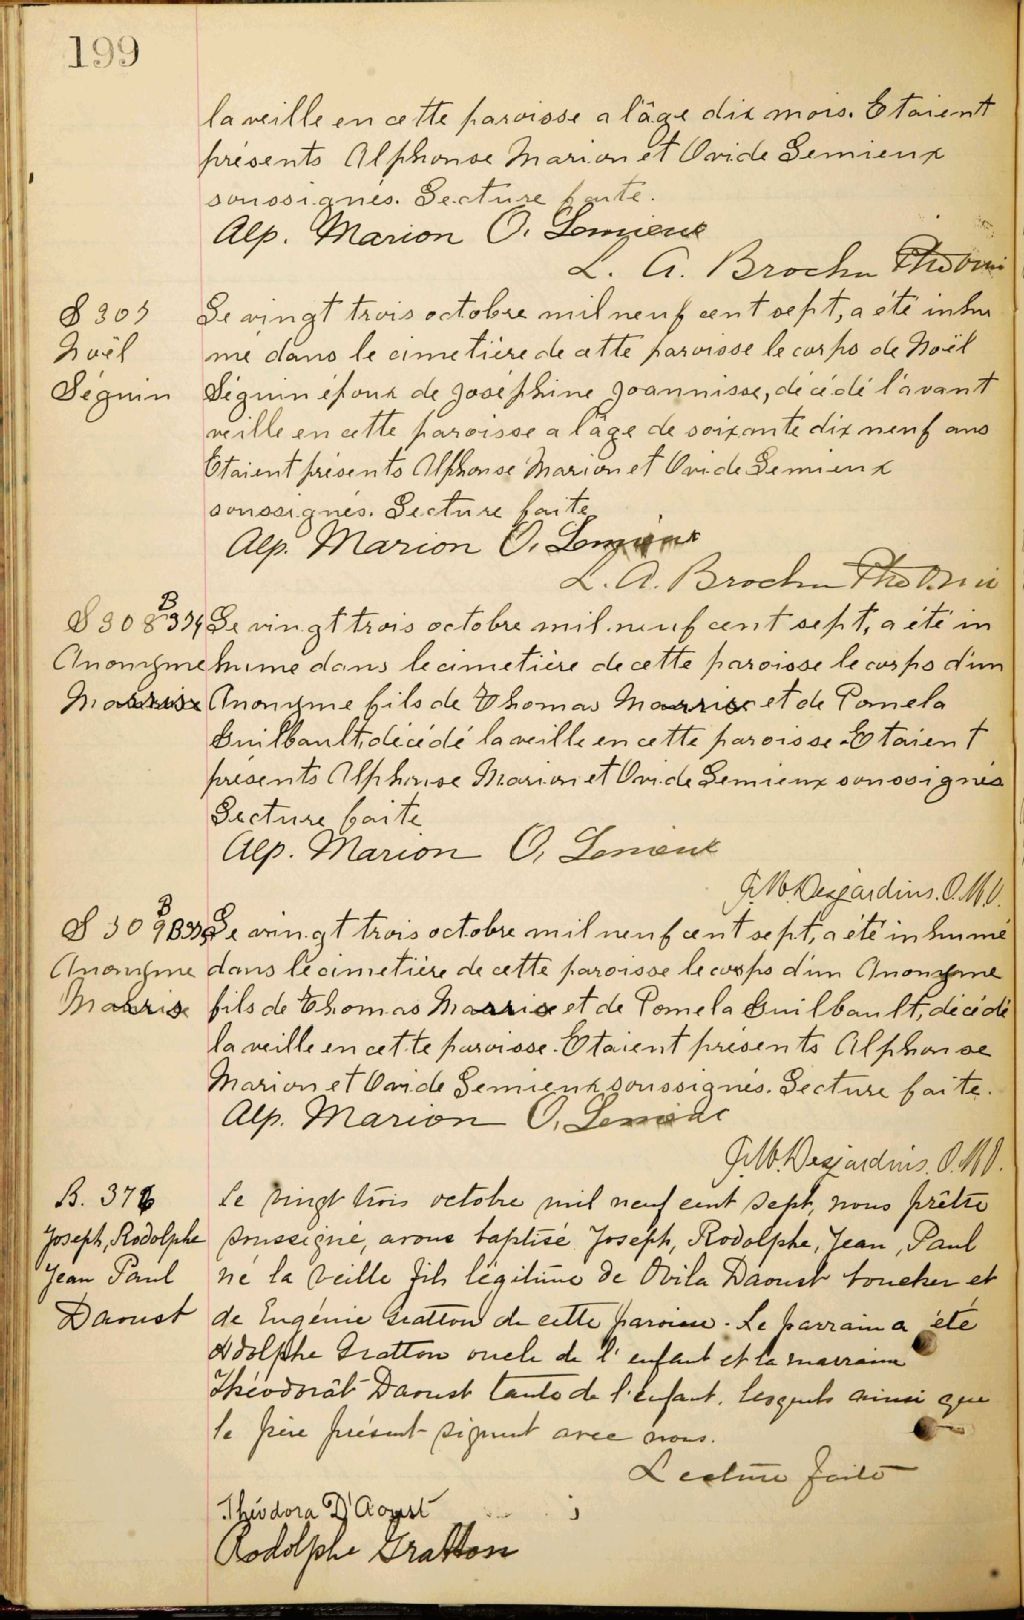 199
la veille en cette paroisse a l'âge dix mois. Etaient
présents Alphonse Marion et Ovide Lemieux
soussignés. Lecture faite.
Alp. Marion O. Lemieux
L. A. Brochu Ptre O.m.i
S 307
Noël
Séguin
Le vingt trois octobre mil neuf cent sept, a été inhu
mé dans le cimetière de cette paroisse le corps de Noël
Séguin époux de Joséphine Joannisse, décédé l'avant
veille en cette paroisse a l'âge de soixante dix neuf ans
Etaient présents Alphonse Marion et Ovide Lemieux
soussignés. Lecture faite
Alp. Marion O. Lemieux
L. A. Brochu Ptre O.m.i
S 308 B 374
Anonyme
Le vingt trois octobre mil neuf cent sept, a été in
humé dans le cimetière de cette paroisse le corps d'un
Anonyme fils de Thomas et de Pomela
Guilbault, décédé la veille en cette paroisse. Etaient
présents Alphonse Marion et Ovide Lemieux soussignés
Lecture faite
Alp. Marion O. Lemieux
J. M. Desjardins. O.M.I.
S 309 B
Anonyme
Le vingt trois octobre mil neuf cent sept, a été inhumé
dans le cimetière de cette paroisse le corps d'un Anonyme
fils de Thomas et de Pomela Guilbault, décédé
la veille en cette paroisse. Etaient présents Alphonse
Marion et Ovide Lemieux soussignés. Lecture faite.
Alp. Marion O. Lemieux
J. M. Desjardins. O.M.I.
B. 376
Joseph, Rodolphe
Jean Paul
Daoust
Le vingt trois octobre mil neuf cent sept, nous prêtre
soussigné, avons baptisé Joseph, Rodolphe, Jean, Paul
né la veille fils légitime de Ovila Daoust boucher et
de Eugénie Gratton de cette paroisse. Le parrain a été
Adolphe Gratton oncle de l'enfant et la marraine
Théodorât Daoust tante de l'enfant. lesquels ainsi que
le père présent signent avec nous.
Lecture faite
Théodora D'Aoust
Rodolphe Gratton